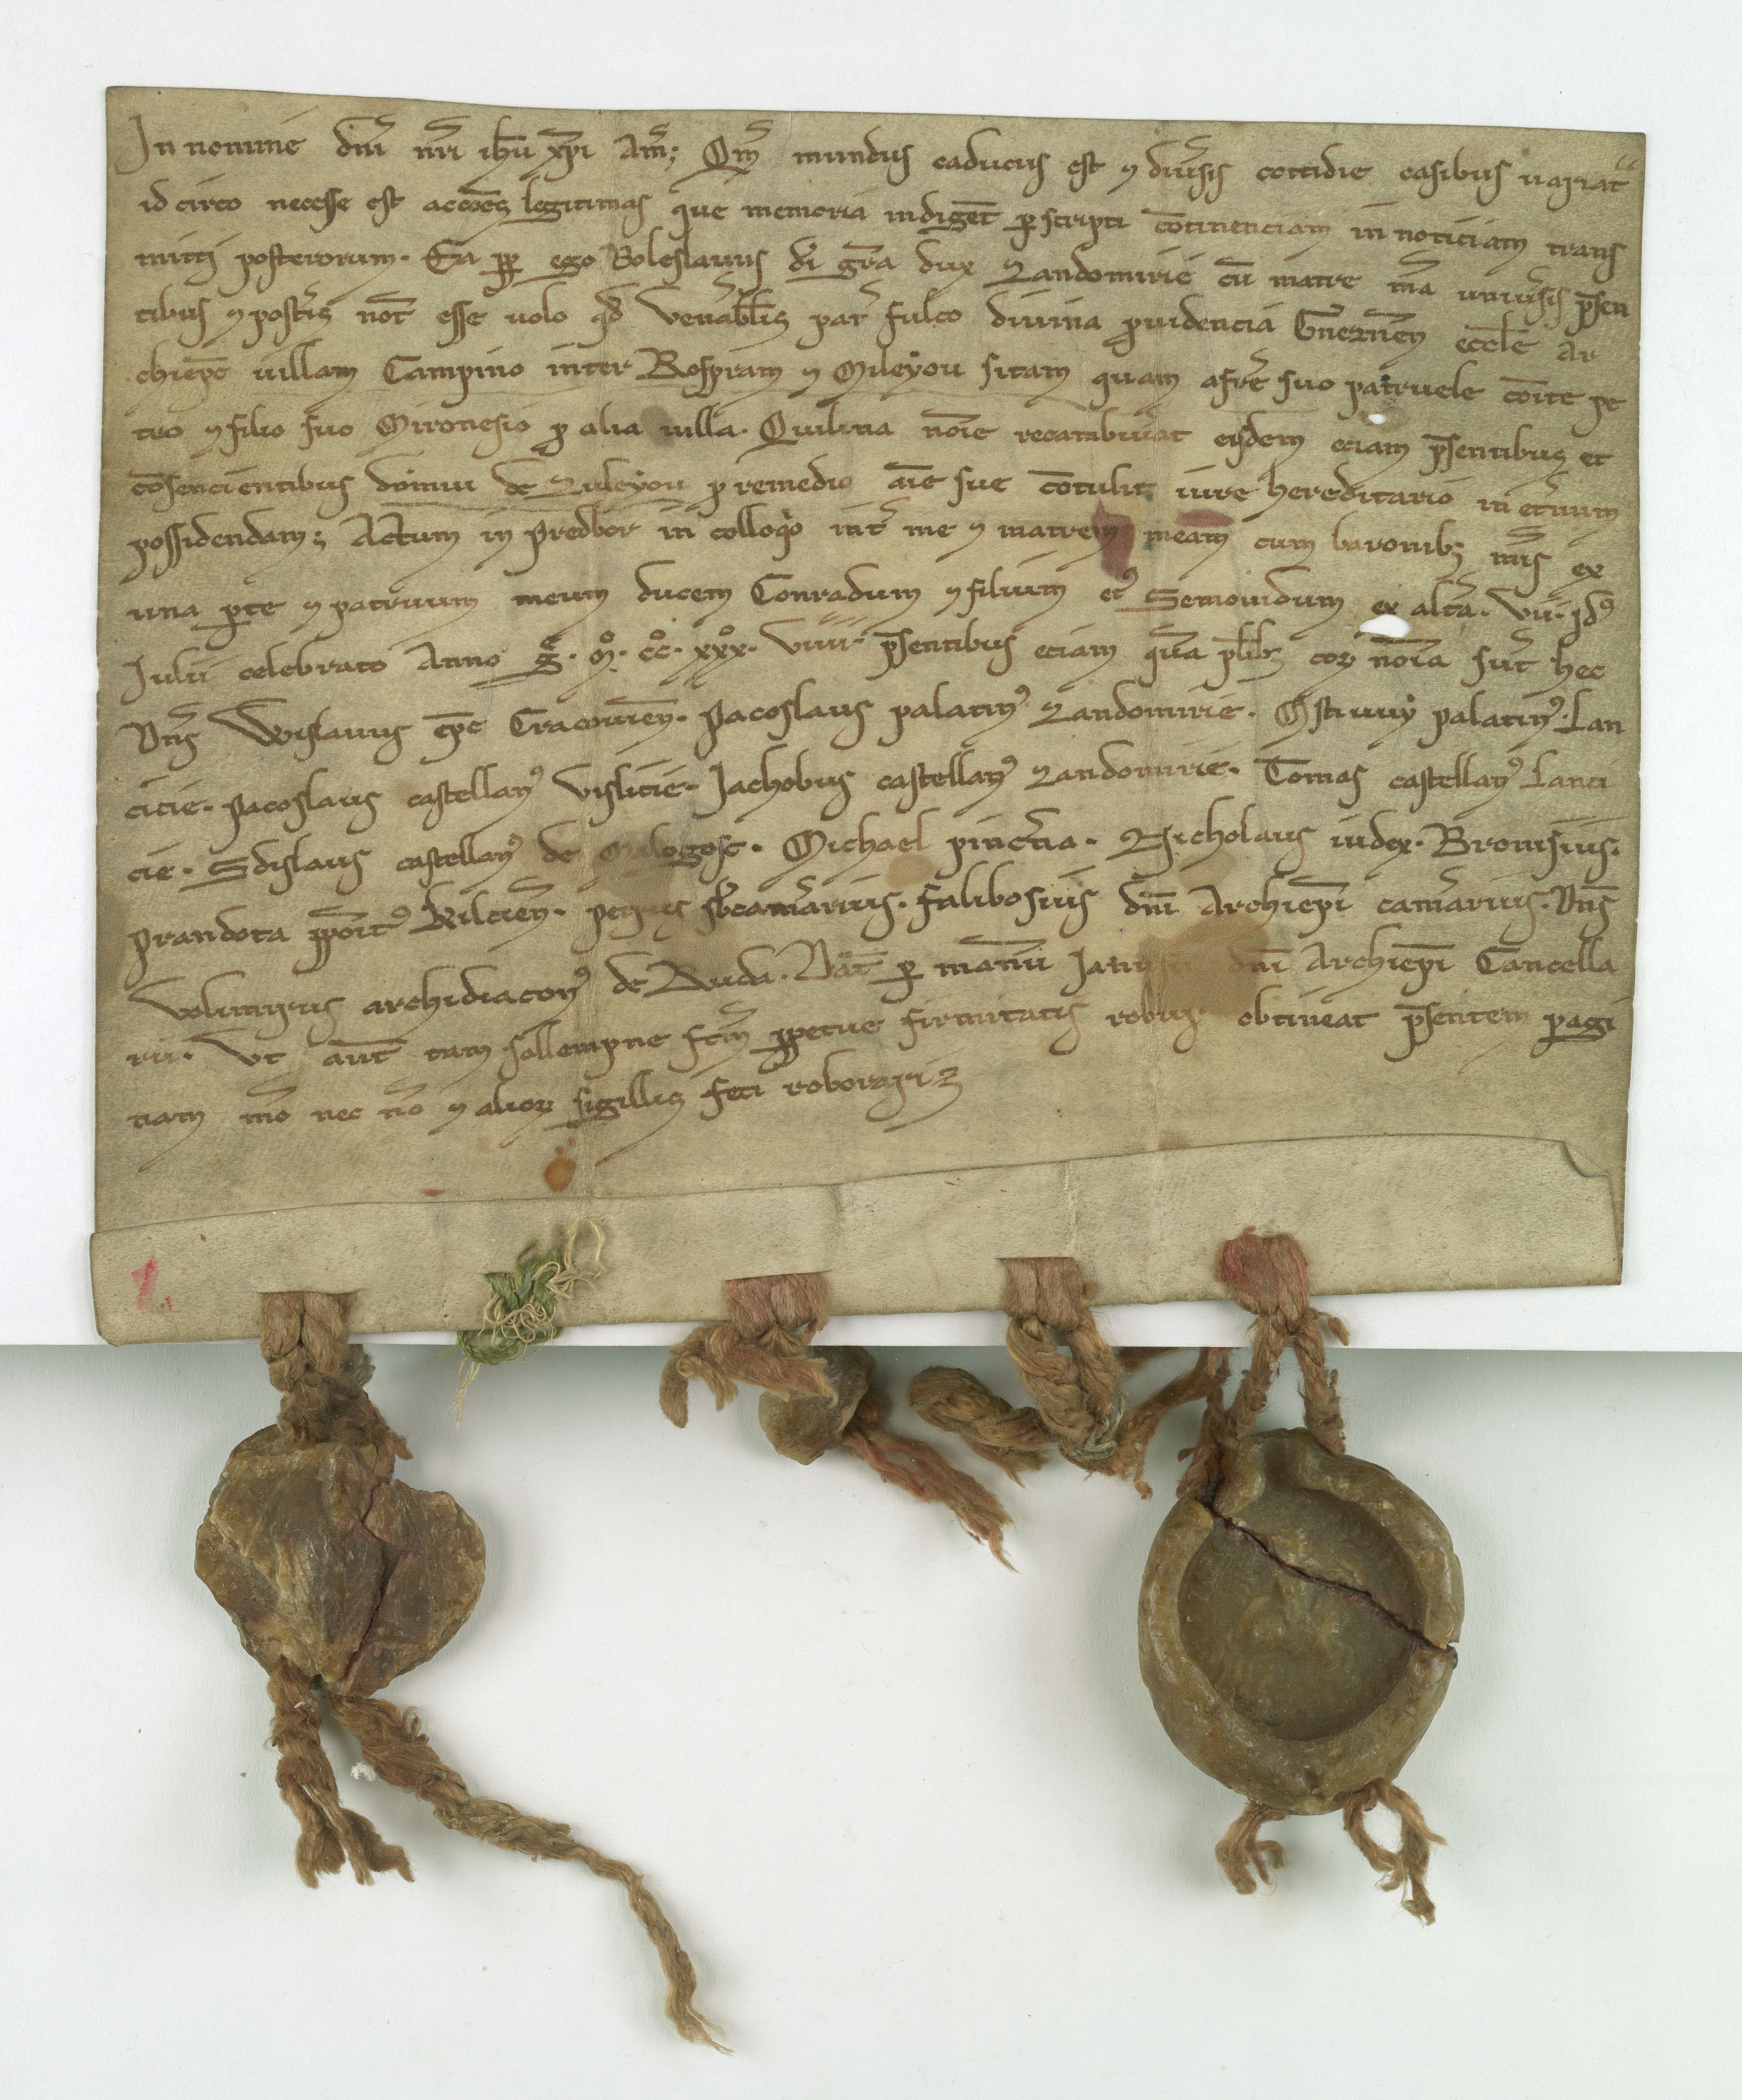 In nomine dni nri ihu xpi Am; Qm mundus caducus est ⁊ diuersis cottidie casibus uariat
id circo necesse est acc̄oes legitimas que memoria indiget p scripti c̄otinenciam in noticiam trans
mitti posterorum. Ea pp ego Boleslauus di gra dux Zandomirie cū matre mā uniuersis p̄sen
tibus ⁊ post̄is not̄ esse uolo qd Venablis pat̄ fulco diuina puidencia Gneznen eccl̄e Ar
chiepc uillam Campino inter Rospram ⁊ Mileyou sitam quam a fre suo patruele c̄oite pe
tro ⁊ filio suo Mironesio p alia uilla. Quilina nōie recambiuit eisdem eciam p̄sentibus et
c̄osencientibus domui de Suleyou p remedio aīe sue c̄otulit iure hereditario in et̄num
possidendam; Actum in Predbor in colloqo int̄ me ⁊ matrem meam cum baronibȝ m̄is ex
una pte ⁊ patruum meum ducem Conradum ⁊ filium ei Semouidum ex alt̄a. VII. Idꝰ
Iulii celebrato Anno g. M. CC. XXX. VIIII p̄sentibus eciam pl̄ibȝ coꝝ nōia sūt hec
Dns Wislauus epc Cracouien. Pacoslaus palatinꝰ Zandomirie. palatinꝰ Lan
cicie. Pacoslaus castellanꝰ Vislicie. Iachobus castellanꝰ Zandomirie. Tomas castellanꝰ Lanci
cie. Sdislaus castellanꝰ de Malogosc. Michael pinc̄na. Nicholaus iudex. Bronisius.
Prandota ppoitꝰ Kilcien. Petrus sbcam̄arius. Falibosius dni Archiepi cam̄arius. Dns
Volimirus archidiaconꝰ de Ruda. Dat̄ p manū Ianusii dni Archiepi Cancella
rii. Ut aut̄ tam sollempne fcm ppetue firmitatis robur obtineat p̄sentem pagi
nam m̄o nec nō ⁊ alioꝝ sigillis feci roborari
1.